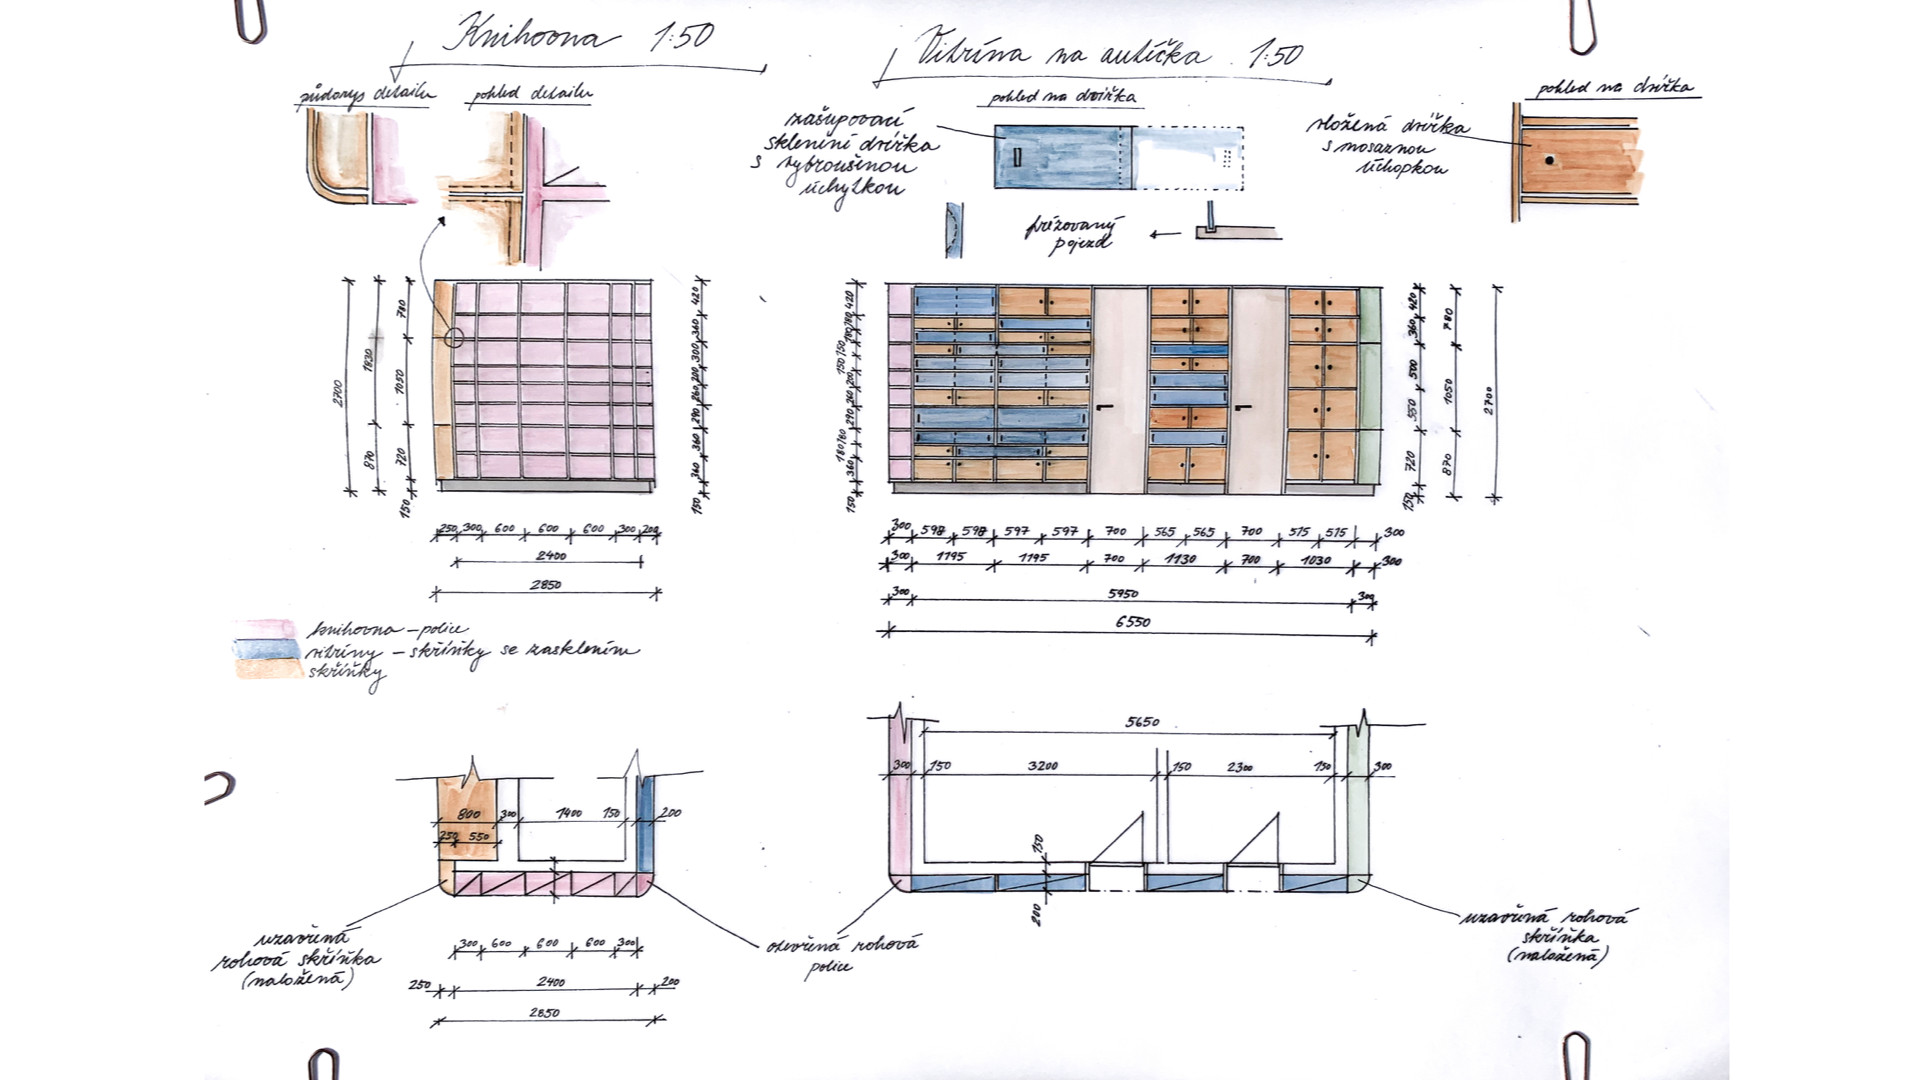 Knihovna 1:50
půdorys detailu
pohled detailu
Vitrína na autíčka 1:50
pohled na dvířka
zasupovací
sklenění dvířka
s vybroušenou
úchytkou
frézovaný
pojezd
pohled na dvířka
vložená dvířka
s mosaznou
úchopkou
2700
1830
870
780
1050
720
150
420
360
300
360
360
150
250 300 600 600 600 300 200
2400
2850
420
360
150
300 598 598 597 597 700 565 565 700 515 515 300
300 1195 1195 700 1130 700 1030 300
300 5950 300
6550
420
360
500
550
720
150
780
1050
870
2700
knihovna – police
vitríny – skříňky se zasklením
skříňky
800 300 1400 150 200
250 550
uzavřená
rohová skříňka
(naložená)
300 600 600 600 300
250 2400 200
2850
otevřená rohová
police
5650
300 150 3200 150 2300 150 300
150
200
uzavřená rohová
skříňka
(naložená)